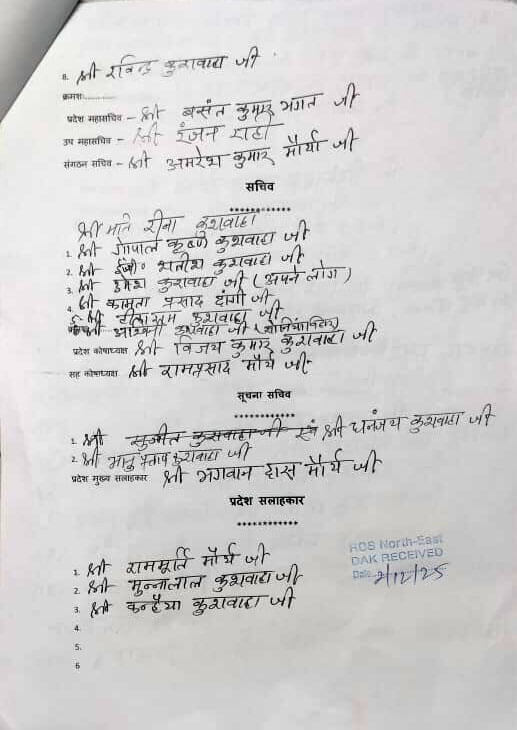 8. श्री रविन्द्र कुशवाहा जी
क्रमशः............
प्रदेश महासचिव - श्री बसंत कुमार भगत जी
उप महासचिव - श्री इंजन राही
संगठन सचिव - श्री अमरेश कुमार मौर्या जी
सचिव
************
श्रीमति रीना कुशवाहा
1. श्री गोपाल कृष्ण कुशवाहा जी
2. श्री ईंजी० सतीश कुशवाहा जी
3. श्री उमेश कुशवाहा जी (अपने लोग)
4. श्री कामता प्रसाद दांगी जी
कुशवाहा जी
श्री कुशवाहा जी
प्रदेश कोषाध्यक्ष श्री विजय कुमार कुशवाहा जी
सह कोषाध्यक्ष श्री रामप्रसाद मौर्य जी
सूचना सचिव
************
1. श्री सुजीत कुशवाहा जी एवं श्री धनंजय कुशवाहा जी
2. श्री भानु प्रताप कुशवाहा जी
प्रदेश मुख्य सलाहकार श्री भगवान दास मौर्य जी
प्रदेश सलाहकार
************
1. श्री राममूर्ति मौर्य जी
2. श्री मुन्नालाल कुशवाहा जी
3. श्री कन्हैया कुशवाहा जी
4.
5.
6
ROS North-East
DAK RECEIVED
Date 2/12/25